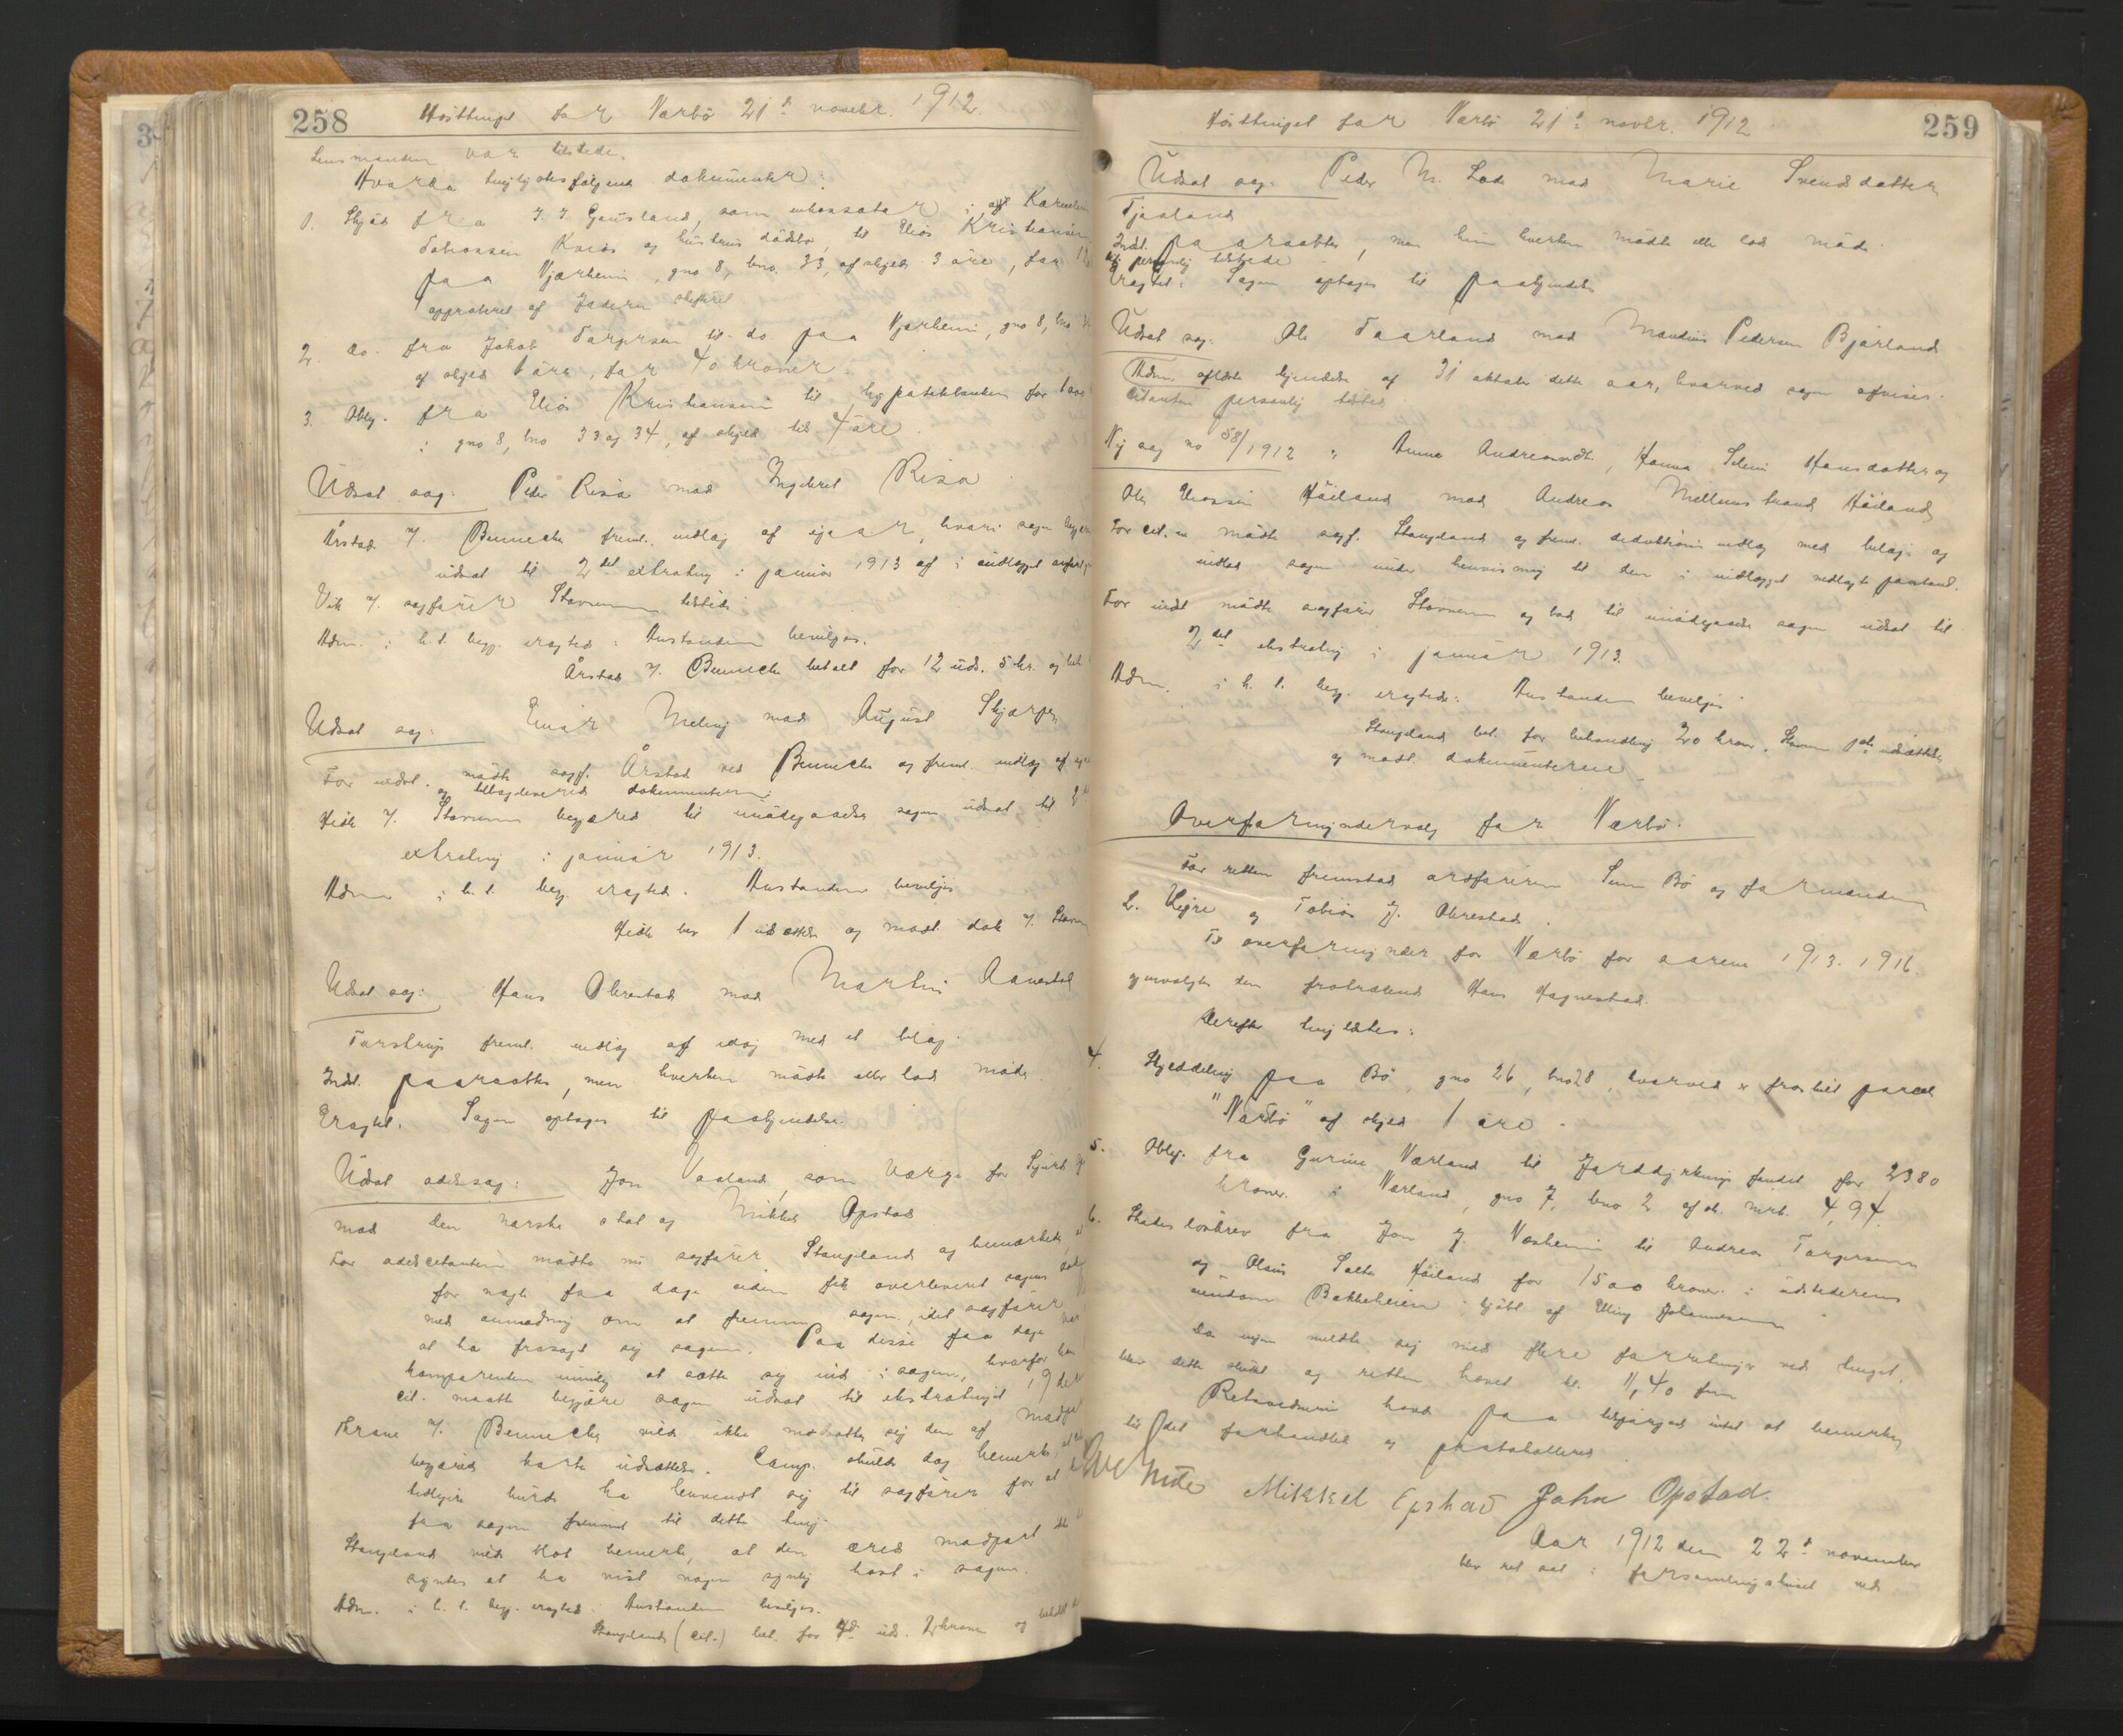 258
Hösttinget for Nærbö 21de novebr. 1912.
Lensmanden var tilstede.
Hvorda tinglystes fölgende dokumenter:
1. Skjöde fra J. J. Gausland, som inkassator i
Tobiassen Kvias og hustrus dödsbo, til Elias Kristiansen
paa Njærheim, gno 8, bno 33, af skyld 3 öre, for
approberet af Jæderen skifteret
2. do. fra Jakob Torgersen til do. paa Njærheim, gno 8, bno
af skyld 1 öre, for 40 kroner.
3. Oblig. fra Elias Kristiansen til hypotekbanken for 1200
i gno 8, bno 33 og 34, af skyld tils. 4 öre.
Udsat sag: Peder Risa mod Ingebret Risa
Årstad v. Benneche freml. indlæg af igaar, hvori sagen begjæres
udsat til 2det extrating i januar 1913 af i indlægget anførte
Vik v. sagförer Stavnem tilstede
Adm. i h. t. begj. eragted: Anstanden bevilges.
Årstad v. Bennech betalt for 12 uds. 5 kr. og
Udsat sag: Einar Meling mod August Skjærpe
For indst. mödte sagf. Årstad ved Bennech og freml. indlæg af
og tilbageleverede dokumenterne
Hidle v. Stavnem begjæred til imödegaaelse sagen udsat til 2
extrating i januar 1913.
Adm. i h. t. begj. eragted. Anstanden bevilges
Hidle bet. 1 udsættelse og modt. dok v. Stavnem
Udsat sag: Hans Obrestad mod Martin Aanestad
Torstrup freml. indlæg af idag med et bilag.
Indst. paaraabtes, men hverken mödte eller lod möde.
Eragtet. Sagen optages til paakjendelse.
Udsat odelssag: Jon Vaaland, som værge for Sigurd
mod den norske stat og Mikkel Opstad
For odelscitanten mödte nu sagförer Stangeland og bemærkede, at
for nogle faa dage siden fik overleveret sagens
med anmodning om at fremme sagen, idet sagförer
at ha frasagt sig sagen. Paa disse faa dage
komparenten umulig at sætte sig ind i sagen, hvorfor
cit. maatte begjære sagen udsat til ekstratinget i 19
Krane v. Bennech vilde ikke modsætte sig den af
begjæred korte udsættelse. Comp. skulde dog bemerke
tidligere burde ha henvendt sig til sagförer for at
faa sagen fremmet til dette ting.
Stangeland vilde blot bemerke, at den ærede modpart
syntes at ha vist nogen synlig hast i sagen.
Adm. i h. t. begj. eragted. Anstanden bevilges.
Stangeland (cit.) bet. for uds. 2 kroner og
259
Hösttinget for Nærbö 21de novbr. 1912
Udsat sag: Peder M. Lode mod Marie Svendsdatter
Tjaaland
Indst. paaraabtes, men hun hverken mödte eller lod möde.
Cit. personlig tilstede
Eragtet: Sagen optages til paakjendelse
Udsat sag: Ole Taarland mod Mandius Pedersen Bjorland
Adm. aflæste kjendelse af 31 oktober dette aar, hvorved sagen afvises.
Citanten personlig tilstede
Ny sag no 58/1912: Anna Andreasdtr, Hanna Seline Hansdatter og
Ole Eliassen Höiland mod Andreas Mellemstrand Höiland
For cit.ne mödte sagf. Stangeland og freml. deduktionsindlæg med bilag og
indlod sagen under henvisning til den i indlægget nedlagte paastand.
For indst. mödte sagförer Stavnem og bad til imödegaaelse sagen udsat til
2det ekstrating i januar 1913.
Adm. i h. t. begj. eragted: Anstanden bevilges
Stangeland bet. for behandling 20 kroner, Stavnem 1ste udsættelse
og modt. dokumenterne
Overformyndervalg for Nærbö.
For retten fremstod ordföreren Sven Bö og formændene
L. Hegre og Tobias J. Obrestad.
Til overformynder for Nærbö for aarene 1913. 1916
gjenvalgtes den fratrædende Hans Hognestad.
Derefter tinglæstes:
4. Skylddeling paa Bö, gno 26, bno 28, hvorved er fraskilt parcel
"Nærbö" af skyld 1 öre.
5. Oblig. fra Gurine Værland til Jorddyrkningsfondet for 2380
kroner i Værland, gno 7, bno 2 af sk. mrk. 4,94.
6. Skadeslösbrev fra Jon J. Vasheim til Andreas Torgersen
og Olaus Salte Höiland for 1500 kroner i udstederens
eiendom Bakkeheien kjöbt af Elling Johannessen
Da ingen meldte sig med flere forretninger ved tinget,
blev dette sluttet og retten hævet kl. 11,40 fm
Retsvidnerne havde paa tilspörgsel intet at bemerke
til det forhandlede og protokollerede
Mikkel Opstad John Opstad.
Aar 1912 den 22de november
blev ret sat i forsamlingshuset ved